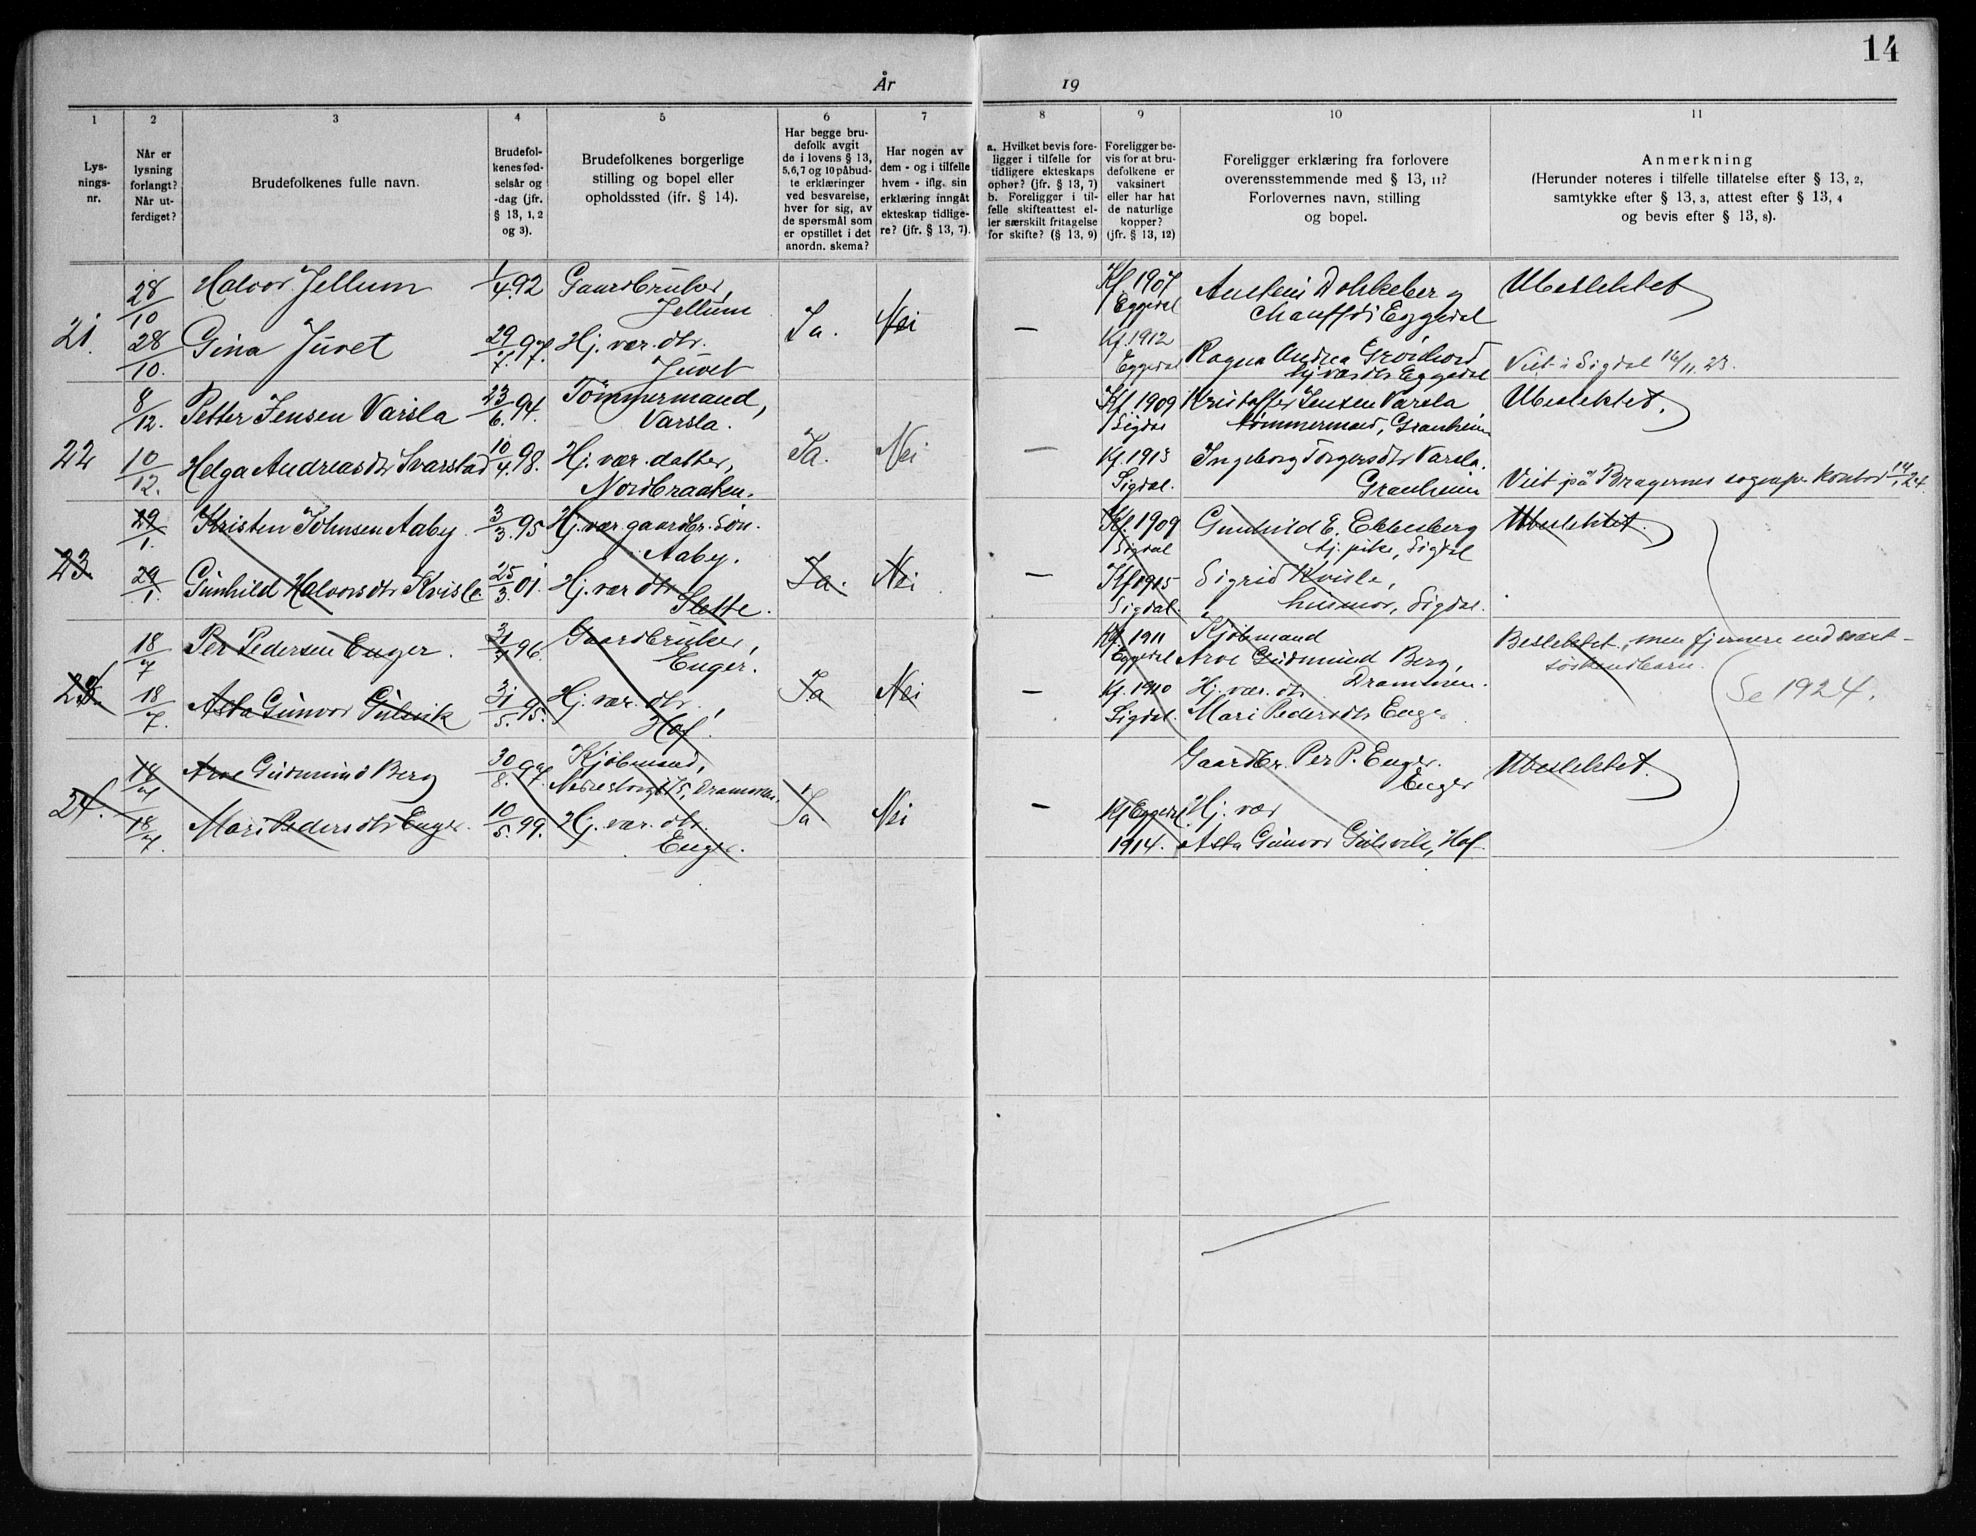 14
År 19
1 2 3 4 5 6 7 8 9 10 11
Lys-
nings-
nr.
Når er
lysning
forlangt?
Når ut-
ferdiget?
Brudefolkenes fulle navn.
Brudefol-
kenes fød-
selsår og
-dag (jfr.
§ 13, 1, 2
og 3).
Brudefolkenes borgerlige
stilling og bopel eller
opholdssted (jfr. § 14).
Har begge bru-
defolk avgit
de i lovens § 13,
5, 6, 7 og 10 påbud-
te erklæringer
ved besvarelse,
hver for sig, av
de spørsmål som
er opstillet i det
anordn. skema?
Har nogen av
dem - og i tilfelle
hvem - iflg. sin
erklæring inngåt
ekteskap tidlige-
re? (jfr. § 13, 7).
a. Hvilket bevis fore-
ligger i tilfelle for
tidligere ekteskaps
ophør? (jfr. § 13, 7)
b. Foreligger i til-
felle skifteattest el-
ler særskilt fritagelse
for skifte? (§ 13, 9)
Foreligger be-
vis for at bru-
defolkene er
vaksinert
eller har hat
de naturlige
kopper?
(jfr. § 13, 12)
Foreligger erklæring fra forlovere
overensstemmende med § 13, 11?
Forlovernes navn, stilling
og bopel.
Anmerkning
(Herunder noteres i tilfelle tillatelse efter § 13, 2,
samtykke efter § 13, 3, attest efter § 13, 4
og bevis efter § 13, 8).
21.
28/10 Halvor Jellum 1/4 92 Gaardbruker,
Jellum
Kf 1907
Eggedal
Dokkeberg
Chauffør Eggedal
Ubeslektet
28/10. Gina Juvet 29/7. 97. Hj. vær. dtr.
Juvet
Ja. Nei —
Kf. 1912
Eggedal
Ragna Andrea Grønhovd
hj vær dtr Eggedal
Viet i Sigdal 16/11. 23.
22
8/12. Petter Jensen Varsla 23/6. 94. Tømmermand,
Varsla.
Kf 1909
Sigdal
Kristoffer Jensen Varsla
tømmermand, Granheim
Ubeslektet.
10/12. Helga Andreasdtr Svarstad 10/4. 98. Hj. vær. datter,
Nordbraaten.
Ja. Nei —
Kf. 1913
Sigdal.
Ingeborg Torgersdtr Varsla.
Granheim
Viet på Bragernes sognepr. kontor 14/1 24.
23
29/1. Kristen Johnsen Aaby. 3/3. 95 Hj. vær gaardbr. søn.
Aaby.
Kf. 1909
Sigdal
Gunhild E. Ebbesberg
tj. pike, Sigdal
Ubeslektet.
29/1. Gunhild Halvorsdtr Kvisle 25/3. 01. Hj. vær dtr.
Slette.
Ja. Nei —
Kf 1915
Sigdal.
Sigrid Kvisle,
husmor, Sigdal.
18/7 Per Pedersen Enger. 96. Gaardbruker,
Enger.
Kf. 1911
Eggedal
Kjøbmand
Arve Gudmund Berg,
Drammen.
Beslektet, men fjernere end næst-
søskendbarn.
18/7. Asta Gunvor Gulsvik 31/5. 95. Hj. vær. dtr,
Hof.
Ja Nei —
Kf. 1910
Sigdal.
Hj. vær. dtr
Mari Pedersdtr Enger
Se 1924.
24.
18/7 Arve Gudmund Berg 30/8. 97. Kjøbmand,
Drammen.
Gaardbr. Per P. Enger.
Enger
Ubeslektet.
18/7 Mari Pedersdtr Enger. 10/5. 99. Hj. vær. dtr.
Enger.
Ja Nei —
Kf Eggedal
1914.
Hj. vær
Asta Gunvor Gulsvik, Hof